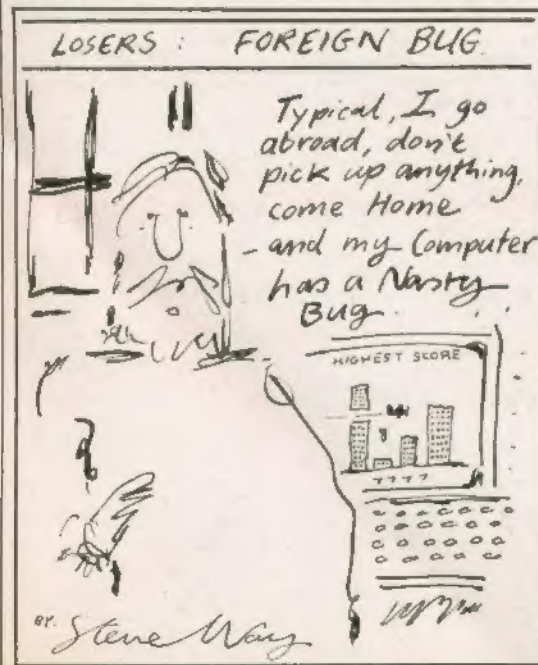 LOSERS : FOREIGN BUG
Typical, I go
abroad, don't
pick up anything,
come Home
- and my Computer
has a Nasty
Bug.
HIGHEST SCORE
7777
BY. Steve Way